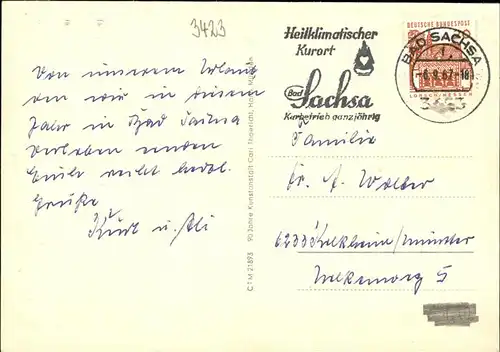 3423
Von unserem Urlaub
den wir in diesem
Jahr in Bad Sachsa
verleben senden
Euch recht herzl.
Grüße
Kurt u.
Heilklimatischer
Kurort
Bad
Sachsa
Kurbetrieb ganzjährig
DEUTSCHE BUNDESPOST
BAD SACHSA
-6.9.67-18
3423
LORSCH/HESSEN
Familie
A. Walter
6233 Kelkheim/Münster
5
CTM 21893 90 Jahre Kunstanstalt Carl Thoericht, Hann.